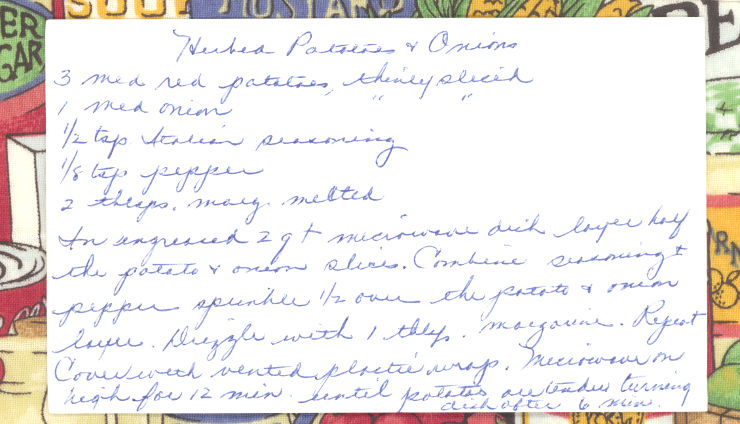 SOUP MUSTARD
ER
GAR
PE
Herbed Potatoes & Onions
3 med red potatoes, thinly sliced
1 med onion " "
1/2 tsp Italian seasoning
1/8 tsp pepper
2 tblsps. marg. melted
In ungreased 2 qt microwave dish layer half
the potato & onion slices. Combine seasoning &
pepper sprinkle 1/2 over the potato & onion
layer. Drizzle with 1 tblsp. margarine. Repeat
Cover with vented plastic wrap. Microwave on
high for 12 min. until potatoes are tender turning
dish after 6 min.